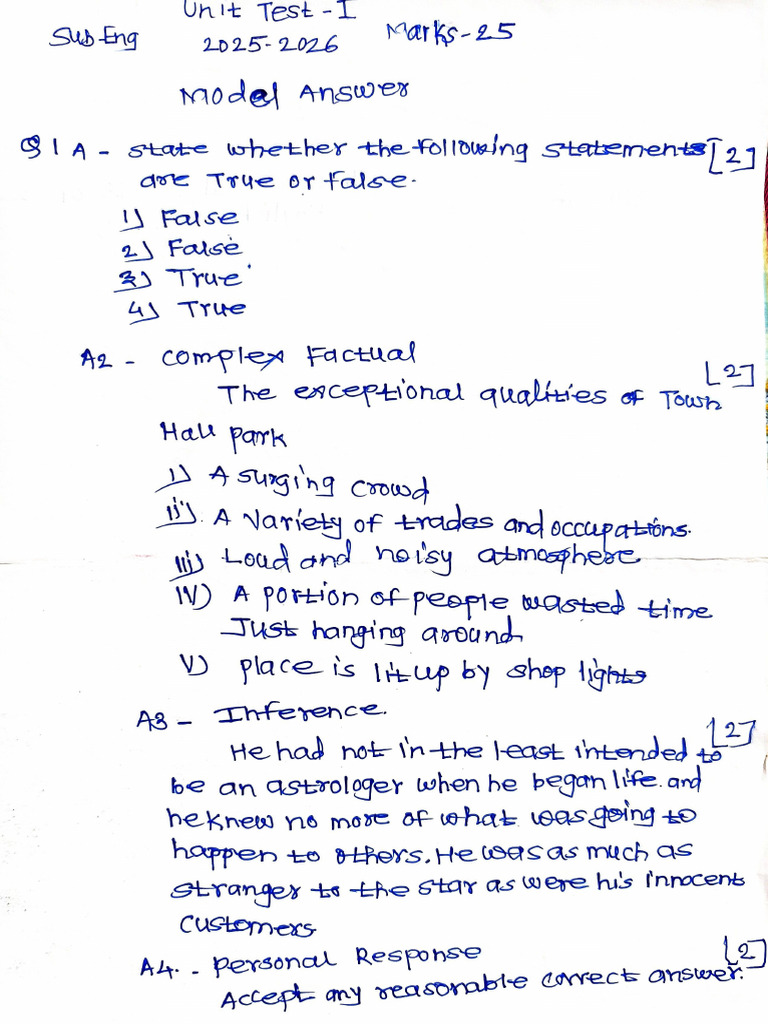 Unit Test - I
Sub Eng 2025-2026 Marks-25
Model Answer
Q 1 A - State whether the following statements [2]
are True or false.
1) False
2) False
3) True
4) True
A2 - Complex Factual [2]
The exceptional qualities of Town
Hall park
i) A surging crowd
ii). A variety of trades and occupations.
iii) Loud and noisy atmosphere
iv) A portion of people wasted time
Just hanging around
v) place is lit up by shop lights
A3 - Inference. [2]
He had not in the least intended to
be an astrologer when he began life. and
he knew no more of what was going to
happen to others. He was as much as
stranger to the star as were his innocent
customers
A4. - Personal Response [2]
Accept any reasonable correct answer.